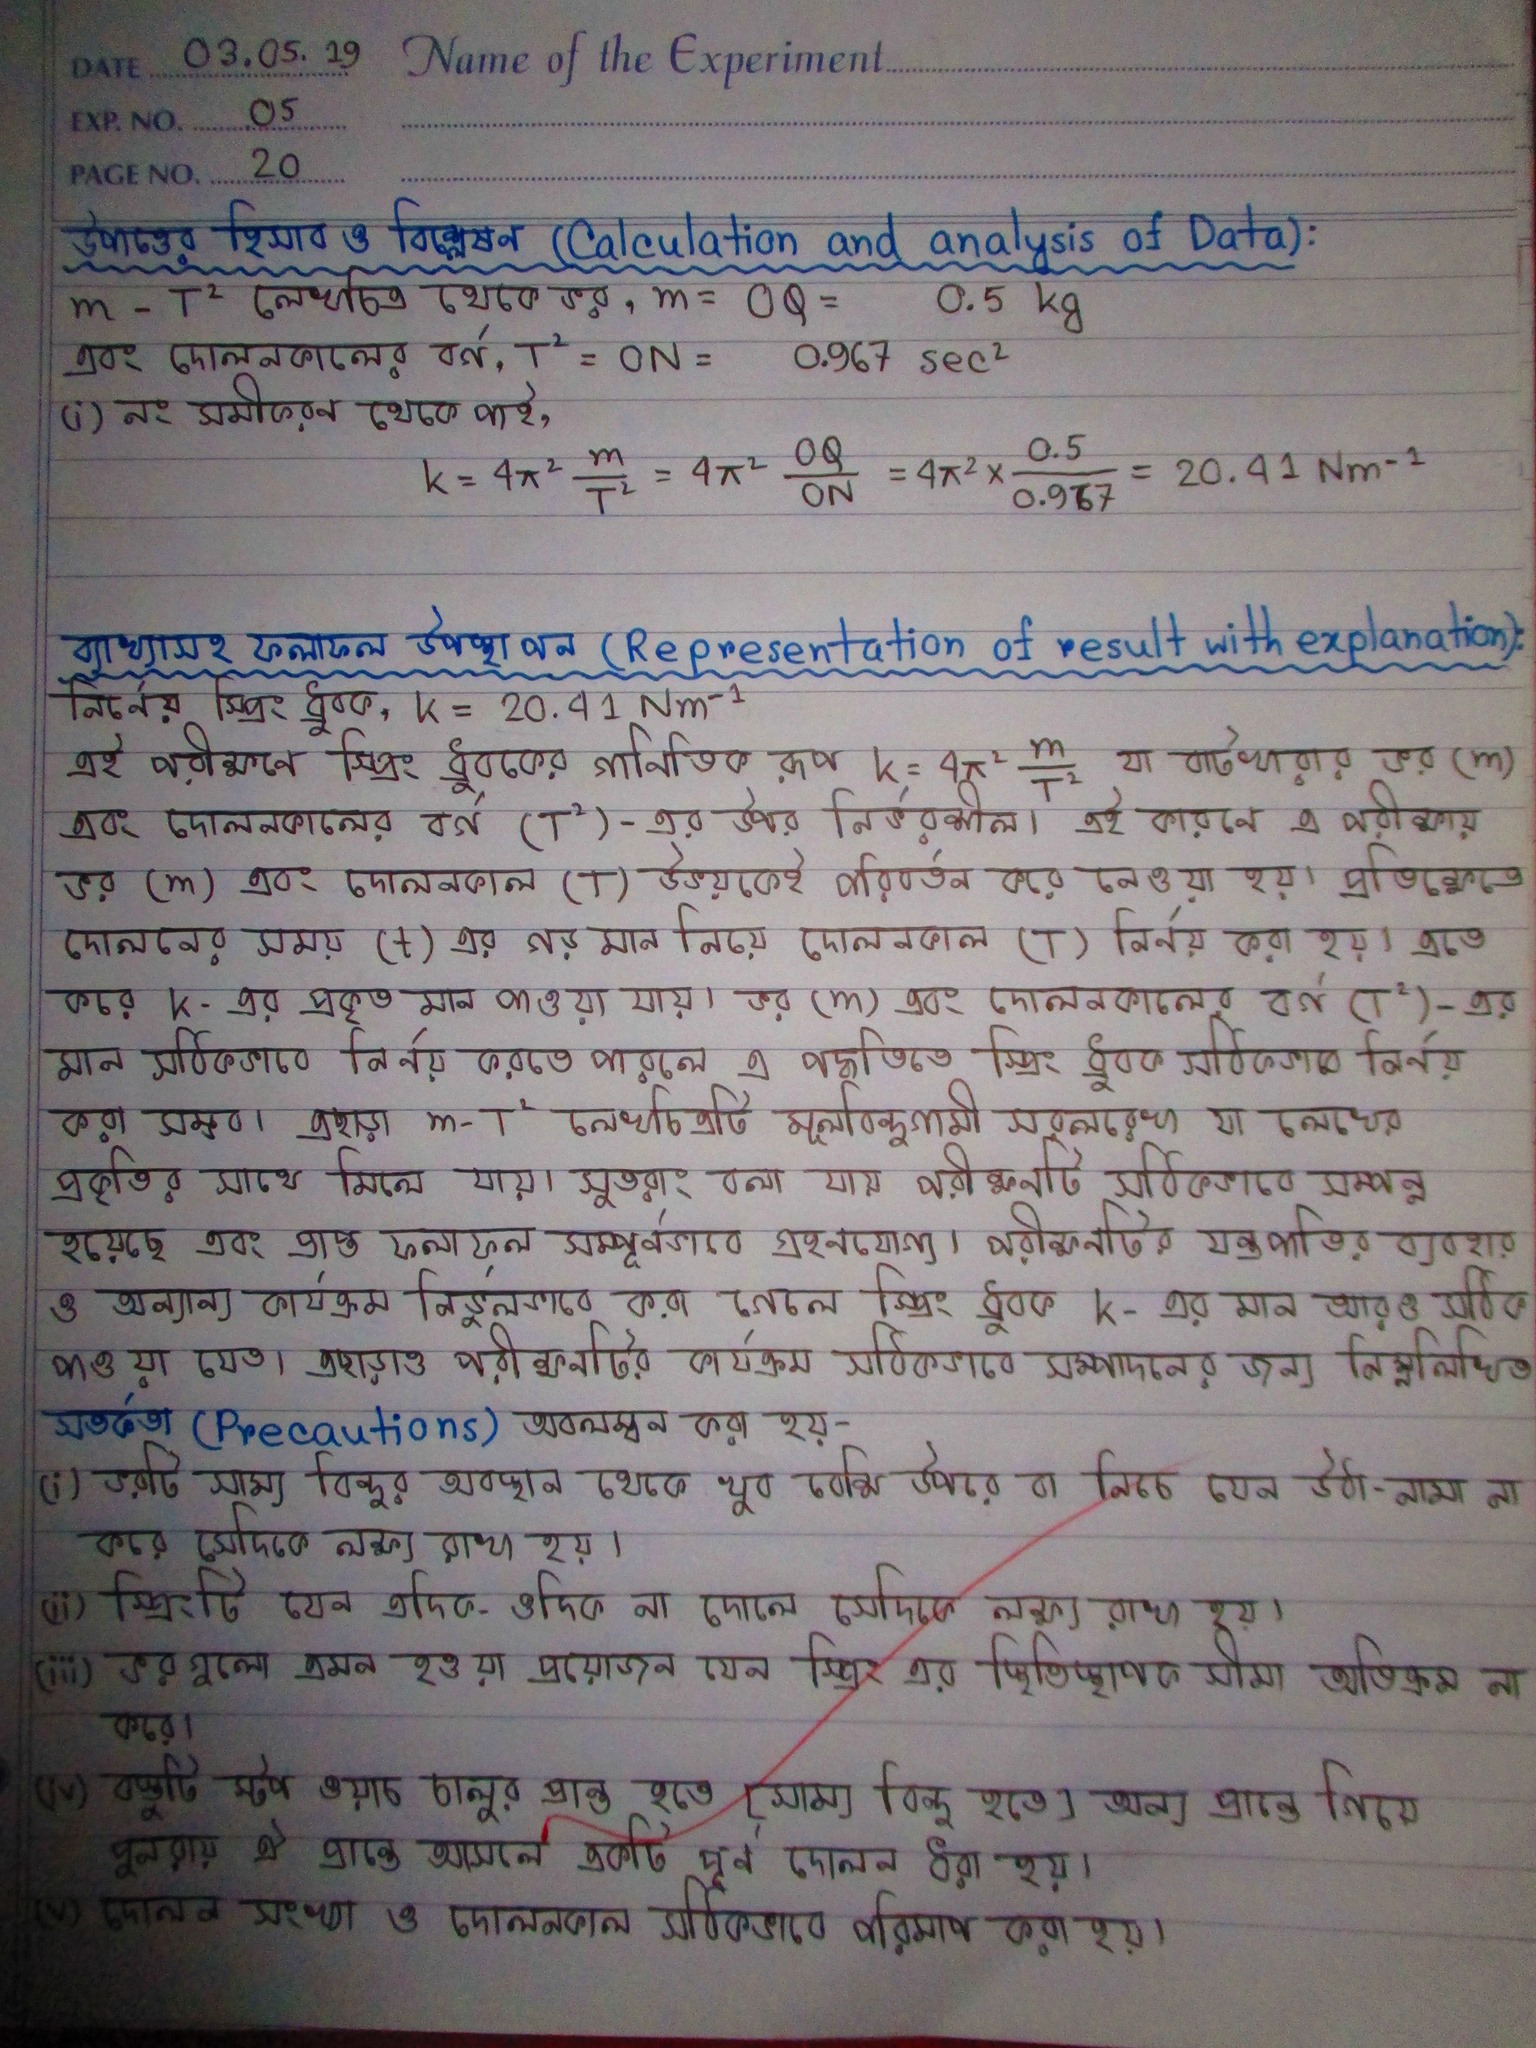 DATE 03.05.19 Name of the Experiment
EXP. NO. 05
PAGE NO. 20
উপাত্তের হিসাব ও বিশ্লেষন (Calculation and analysis of Data):
m - T² লেখচিত্র থেকে ভর, m = OQ = 0.5 kg
এবং দোলনকালের বর্গ, T² = ON = 0.967 sec²
(i) নং সমীকরন থেকে পাই,
k = 4π² m/T² = 4π² OQ/ON = 4π² × 0.5/0.967 = 20.41 Nm⁻¹
ব্যাখ্যাসহ ফলাফল উপস্থাপন (Representation of result with explanation):
নির্নেয় স্প্রিং ধ্রুবক, k = 20.41 Nm⁻¹
এই পরীক্ষনে স্প্রিং ধ্রুবকের গানিতিক রূপ k = 4π² m/T² যা বাটখারার ভর (m)
এবং দোলনকালের বর্গ (T²)-এর উপর নির্ভরশীল। এই কারনে এ পরীক্ষায়
ভর (m) এবং দোলনকাল (T) উভয়কেই পরিবর্তন করে নেওয়া হয়। প্রতিক্ষেত্রে
দোলনের সময় (t) এর গড় মান নিয়ে দোলনকাল (T) নির্নয় করা হয়। এতে
করে k- এর প্রকৃত মান পাওয়া যায়। ভর (m) এবং দোলনকালের বর্গ (T²)-এর
মান সঠিকভাবে নির্নয় করতে পারলে এ পদ্ধতিতে স্প্রিং ধ্রুবক সঠিকভাবে নির্নয়
করা সম্ভব। এছাড়া m-T² লেখচিত্রটি মূলবিন্দুগামী সরলরেখা যা লেখের
প্রকৃতির সাথে মিলে যায়। সুতরাং বলা যায় পরীক্ষনটি সঠিকভাবে সম্পন্ন
হয়েছে এবং প্রাপ্ত ফলাফল সম্পূর্নভাবে গ্রহনযোগ্য। পরীক্ষনটির যন্ত্রপাতির ব্যবহার
ও অন্যান্য কার্যক্রম নির্ভুলভাবে করা গেলে স্প্রিং ধ্রুবক k- এর মান আরও সঠিক
পাওয়া যেত। এছাড়াও পরীক্ষনটির কার্যক্রম সঠিকভাবে সম্পাদনের জন্য নিম্নলিখিত
সতর্কতা (Precautions) অবলম্বন করা হয়-
(i) ভরটি সাম্য বিন্দুর অবস্থান থেকে খুব বেশি উপরে বা নিচে যেন উঠা-নামা না
করে সেদিকে লক্ষ্য রাখা হয়।
(ii) স্প্রিংটি যেন এদিক-ওদিক না দোলে সেদিকে লক্ষ্য রাখা হয়।
(iii) ভরগুলো এমন হওয়া প্রয়োজন যেন স্প্রিং এর স্থিতিস্থাপক সীমা অতিক্রম না
করে।
(iv) বস্তুটি স্টপ ওয়াচ চালুর প্রান্ত হতে [সাম্য বিন্দু হতে] অন্য প্রান্তে গিয়ে
পুনরায় ঐ প্রান্তে আসলে একটি পূর্ন দোলন ধরা হয়।
(v) দোলন সংখ্যা ও দোলনকাল সঠিকভাবে পরিমাপ করা হয়।